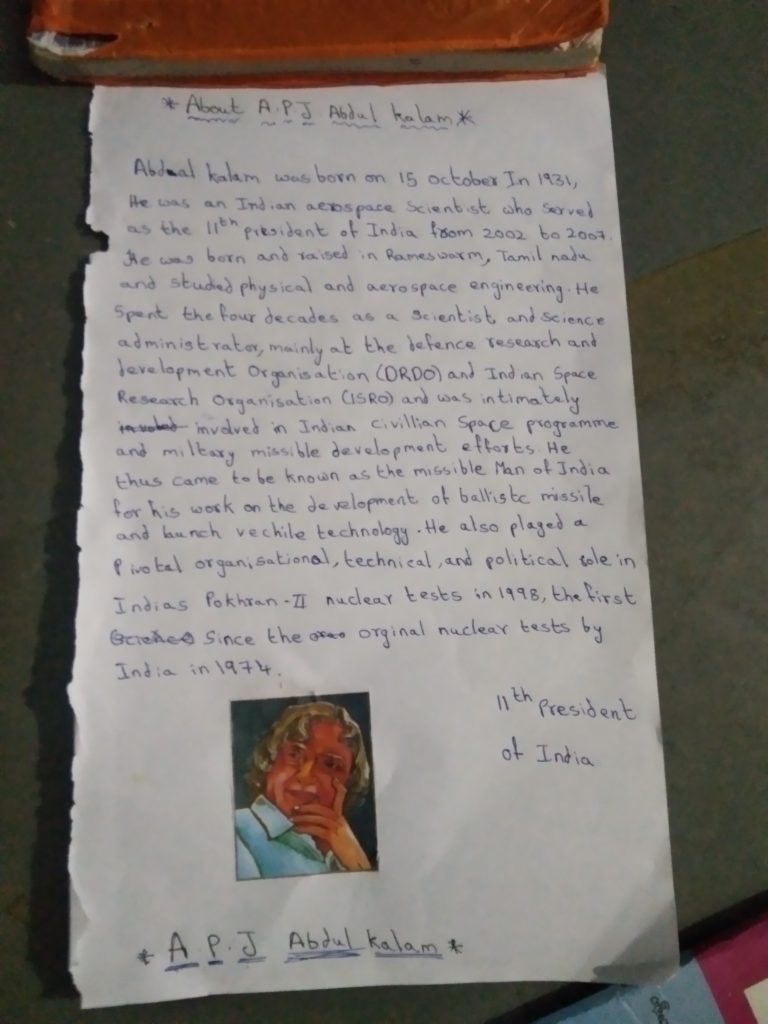 * About A.P.J Abdul kalam *
Abdual kalam was born on 15 october In 1931,
He was an Indian aerospace scientist who served
as the 11th president of India from 2002 to 2007.
He was born and raised in Rameswarm, Tamil nadu
and studed physical and aerospace engineering. He
Spent the four decades as a scientist and science
administrator, mainly at the defence research and
development Organisation (DRDO) and Indian Space
Research Organisation (ISRO) and was intimately
involved in Indian civillian Space programme
and miltary missible development efforts. He
thus came to be known as the missible Man of India
for his work on the development of ballistc missile
and launch vechile technology. He also played a
Pivotal organisational, technical, and political role in
Indias Pokhran-II nuclear tests in 1998, the first
Since the orginal nuclear tests by
India in 1974.
11th President
of India
* A P.J Abdul kalam *